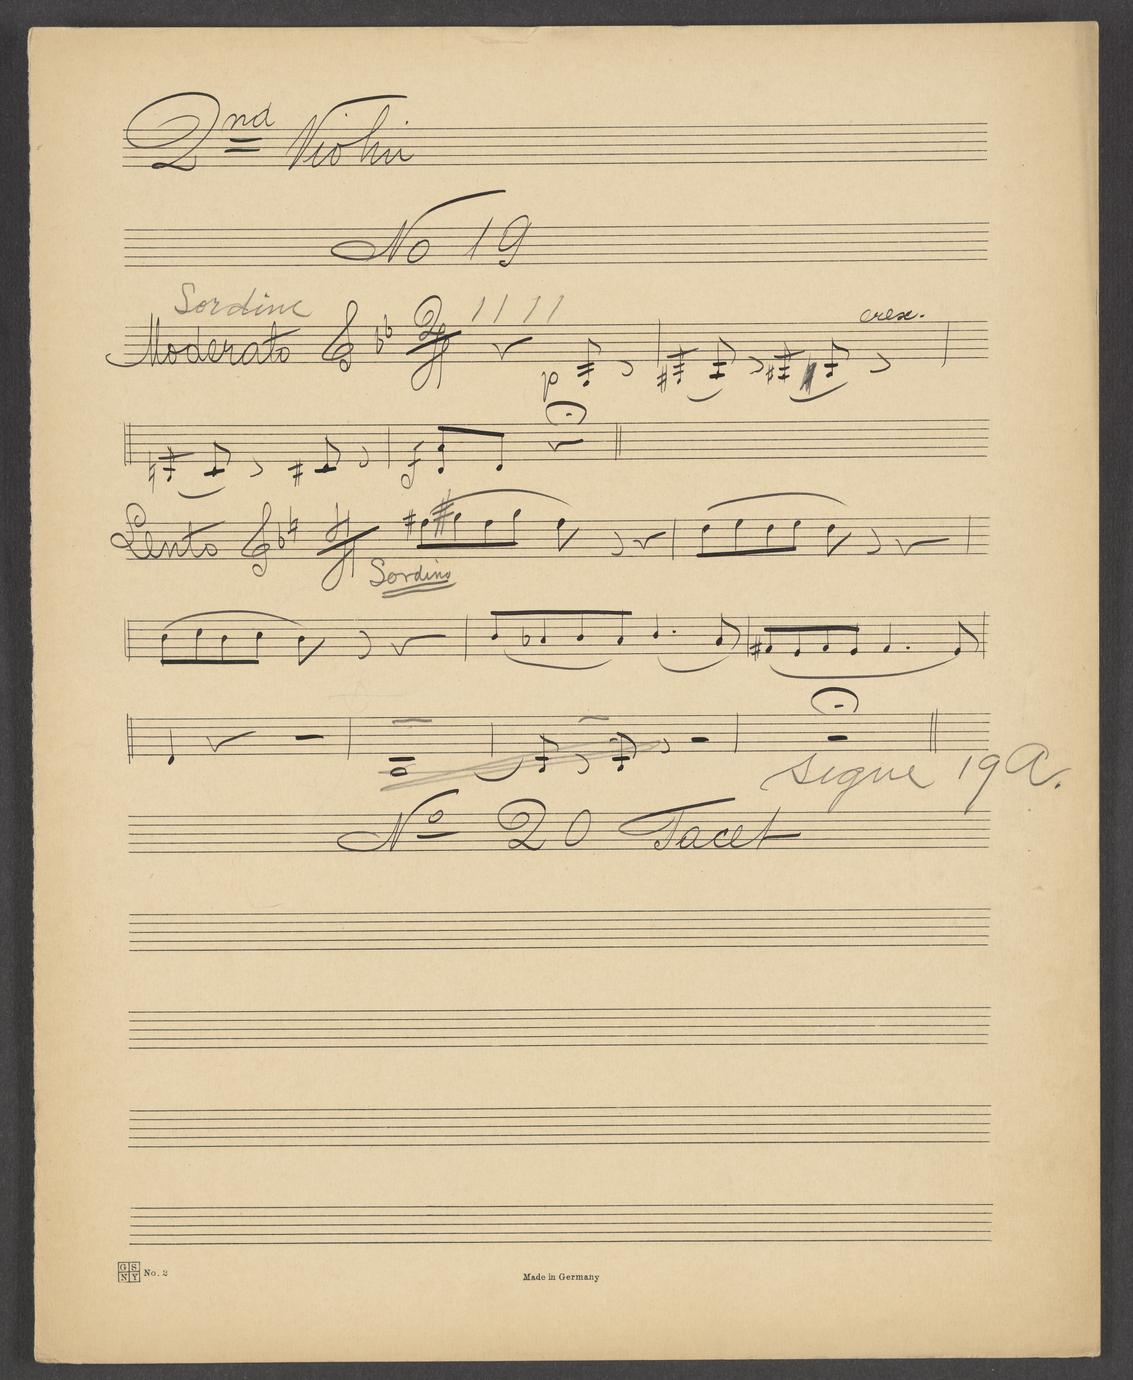 2nd Violin
No 19
Sordine
Moderato
p
cresc.
f
Lento
Sordino
segue 19A.
No 20 Tacet
GS
NY
No. 2
Made in Germany